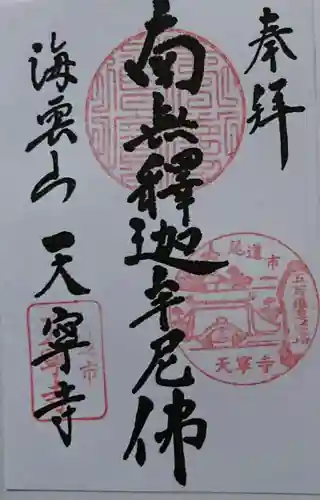 奉拝
南無釋迦牟尼佛
海雲山 天寧寺
尾道市
天寧寺